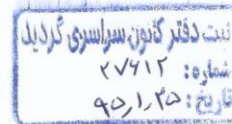 ثبت دفتر کانون سراسری گردید
شماره: ۲۷۶۱۲
تاریخ: ۹۵٫۱٫۲۵